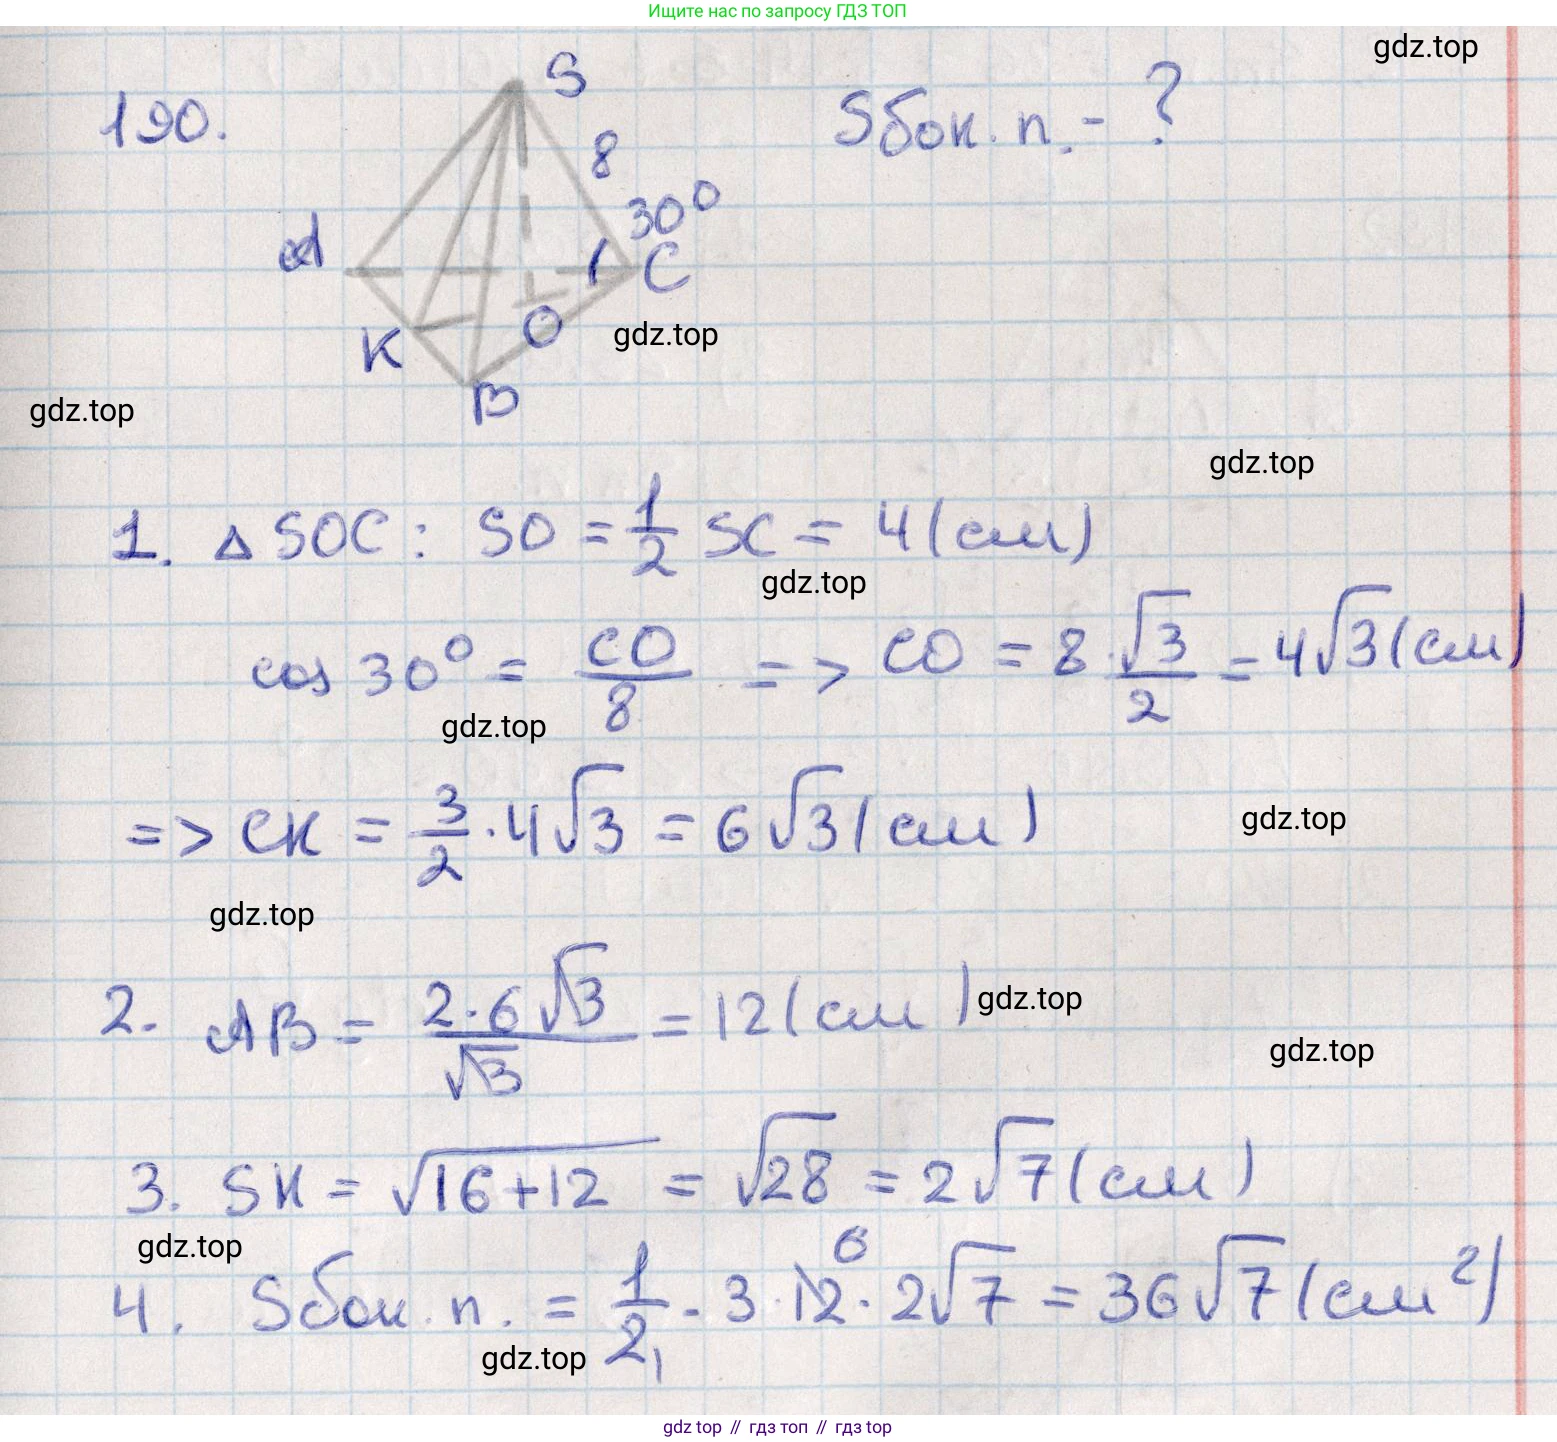 Ищите нас по запросу ГДЗ ТОП
gdz.top
190.
S
Sбок. п. - ?
8
30°
A
C
K
O
gdz.top
B
gdz.top
gdz.top
1. Δ SOC: SO = 1/2 SC = 4 (см)
gdz.top
cos 30° = CO/8 => CO = 8 · √3/2 = 4√3 (см)
gdz.top
=> CK = 3/2 · 4√3 = 6√3 (см)
gdz.top
gdz.top
2. AB = 2·6√3/√3 = 12 (см)
gdz.top
gdz.top
3. SK = √16+12 = √28 = 2√7 (см)
gdz.top
4. Sбок. п. = 1/2 · 3 · 12 · 2√7 = 36√7 (см²)
6
1
gdz.top
gdz top // гдз топ // гдз top